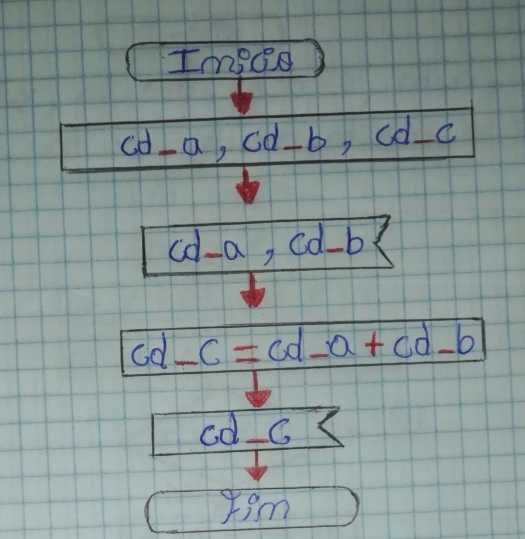 Início
cd_a, cd_b, cd_c
cd_a, cd_b
cd_c = cd_a + cd_b
cd_c
Fim